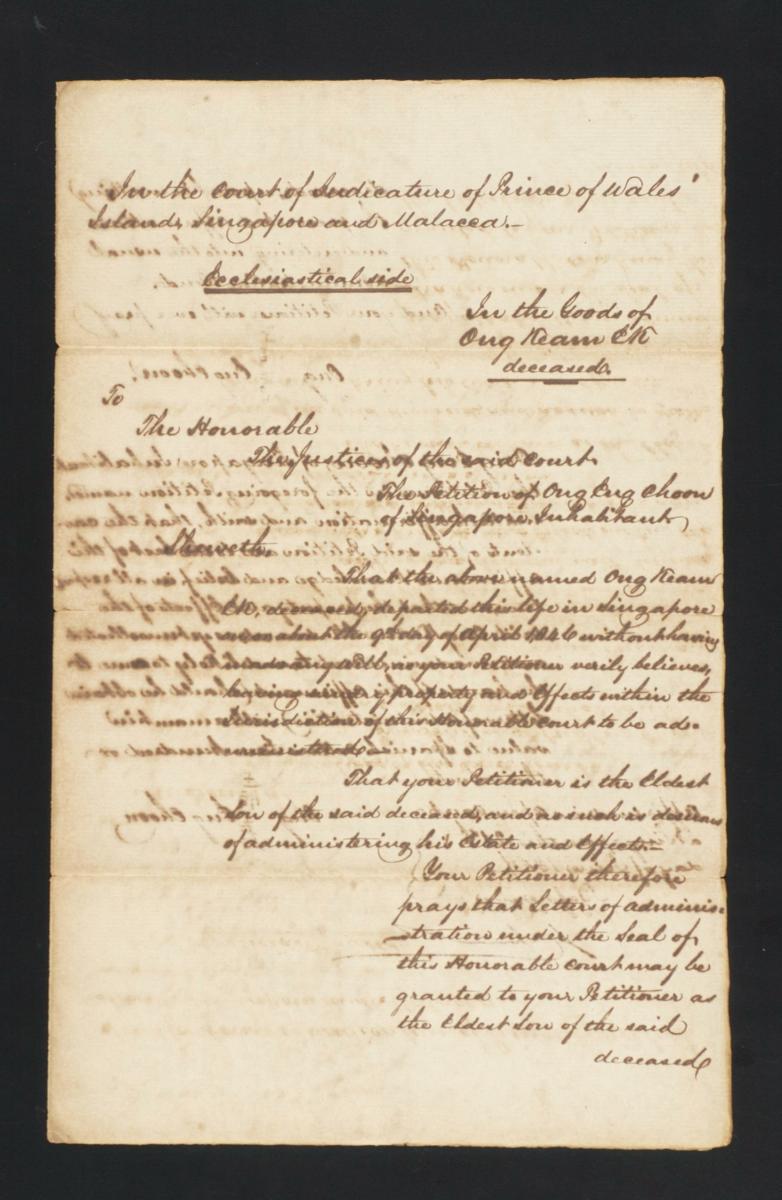 In the Court of Judicature of Prince of Wales'
Island, Singapore and Malacca.—
Ecclesiastical side
In the Goods of
Ong Keam Ek
deceased.
To
The Honorable
The Justices of the said Court
The Petition of Ong Eng Choon
of Singapore, Inhabitant,
Sheweth,
That the above named Ong Keam
Ek, deceased, departed this life in Singapore
on or about the 9th day of April 1846 without having
made any Will, as your Petitioner verily believes,
leaving property and Effects within the
Jurisdiction of this Honorable Court to be ad-
ministered.
That your Petitioner is the Eldest
Son of the said deceased, and as such is desirous
of administering his Estate and Effects.—
Your Petitioner therefore
prays that Letters of Adminis-
tration under the Seal of
this Honorable Court may be
granted to your Petitioner as
the Eldest Son of the said
deceased